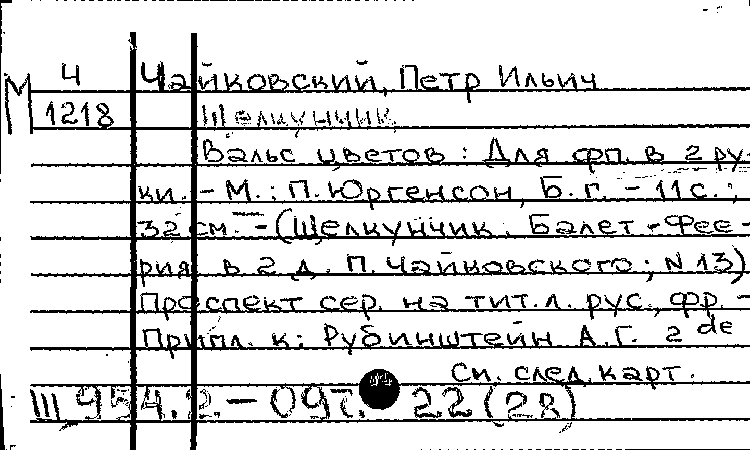 М 4 Чайковский, Петр Ильич
1218 Щелкунчик
Вальс цветов : Для фп. в 2 ру-
ки. - М. : П. Юргенсон, Б.г. - 11 с. ;
32 см. - (Щелкунчик. Балет-Фее-
рия в 2 д. П. Чайковского ; N 13)
Проспект сер. на тит.л. рус., фр. -
Припл. к: Рубинштейн А.Г. 2 de
См. след. карт.
III 954.2.- 097. 22 (28)